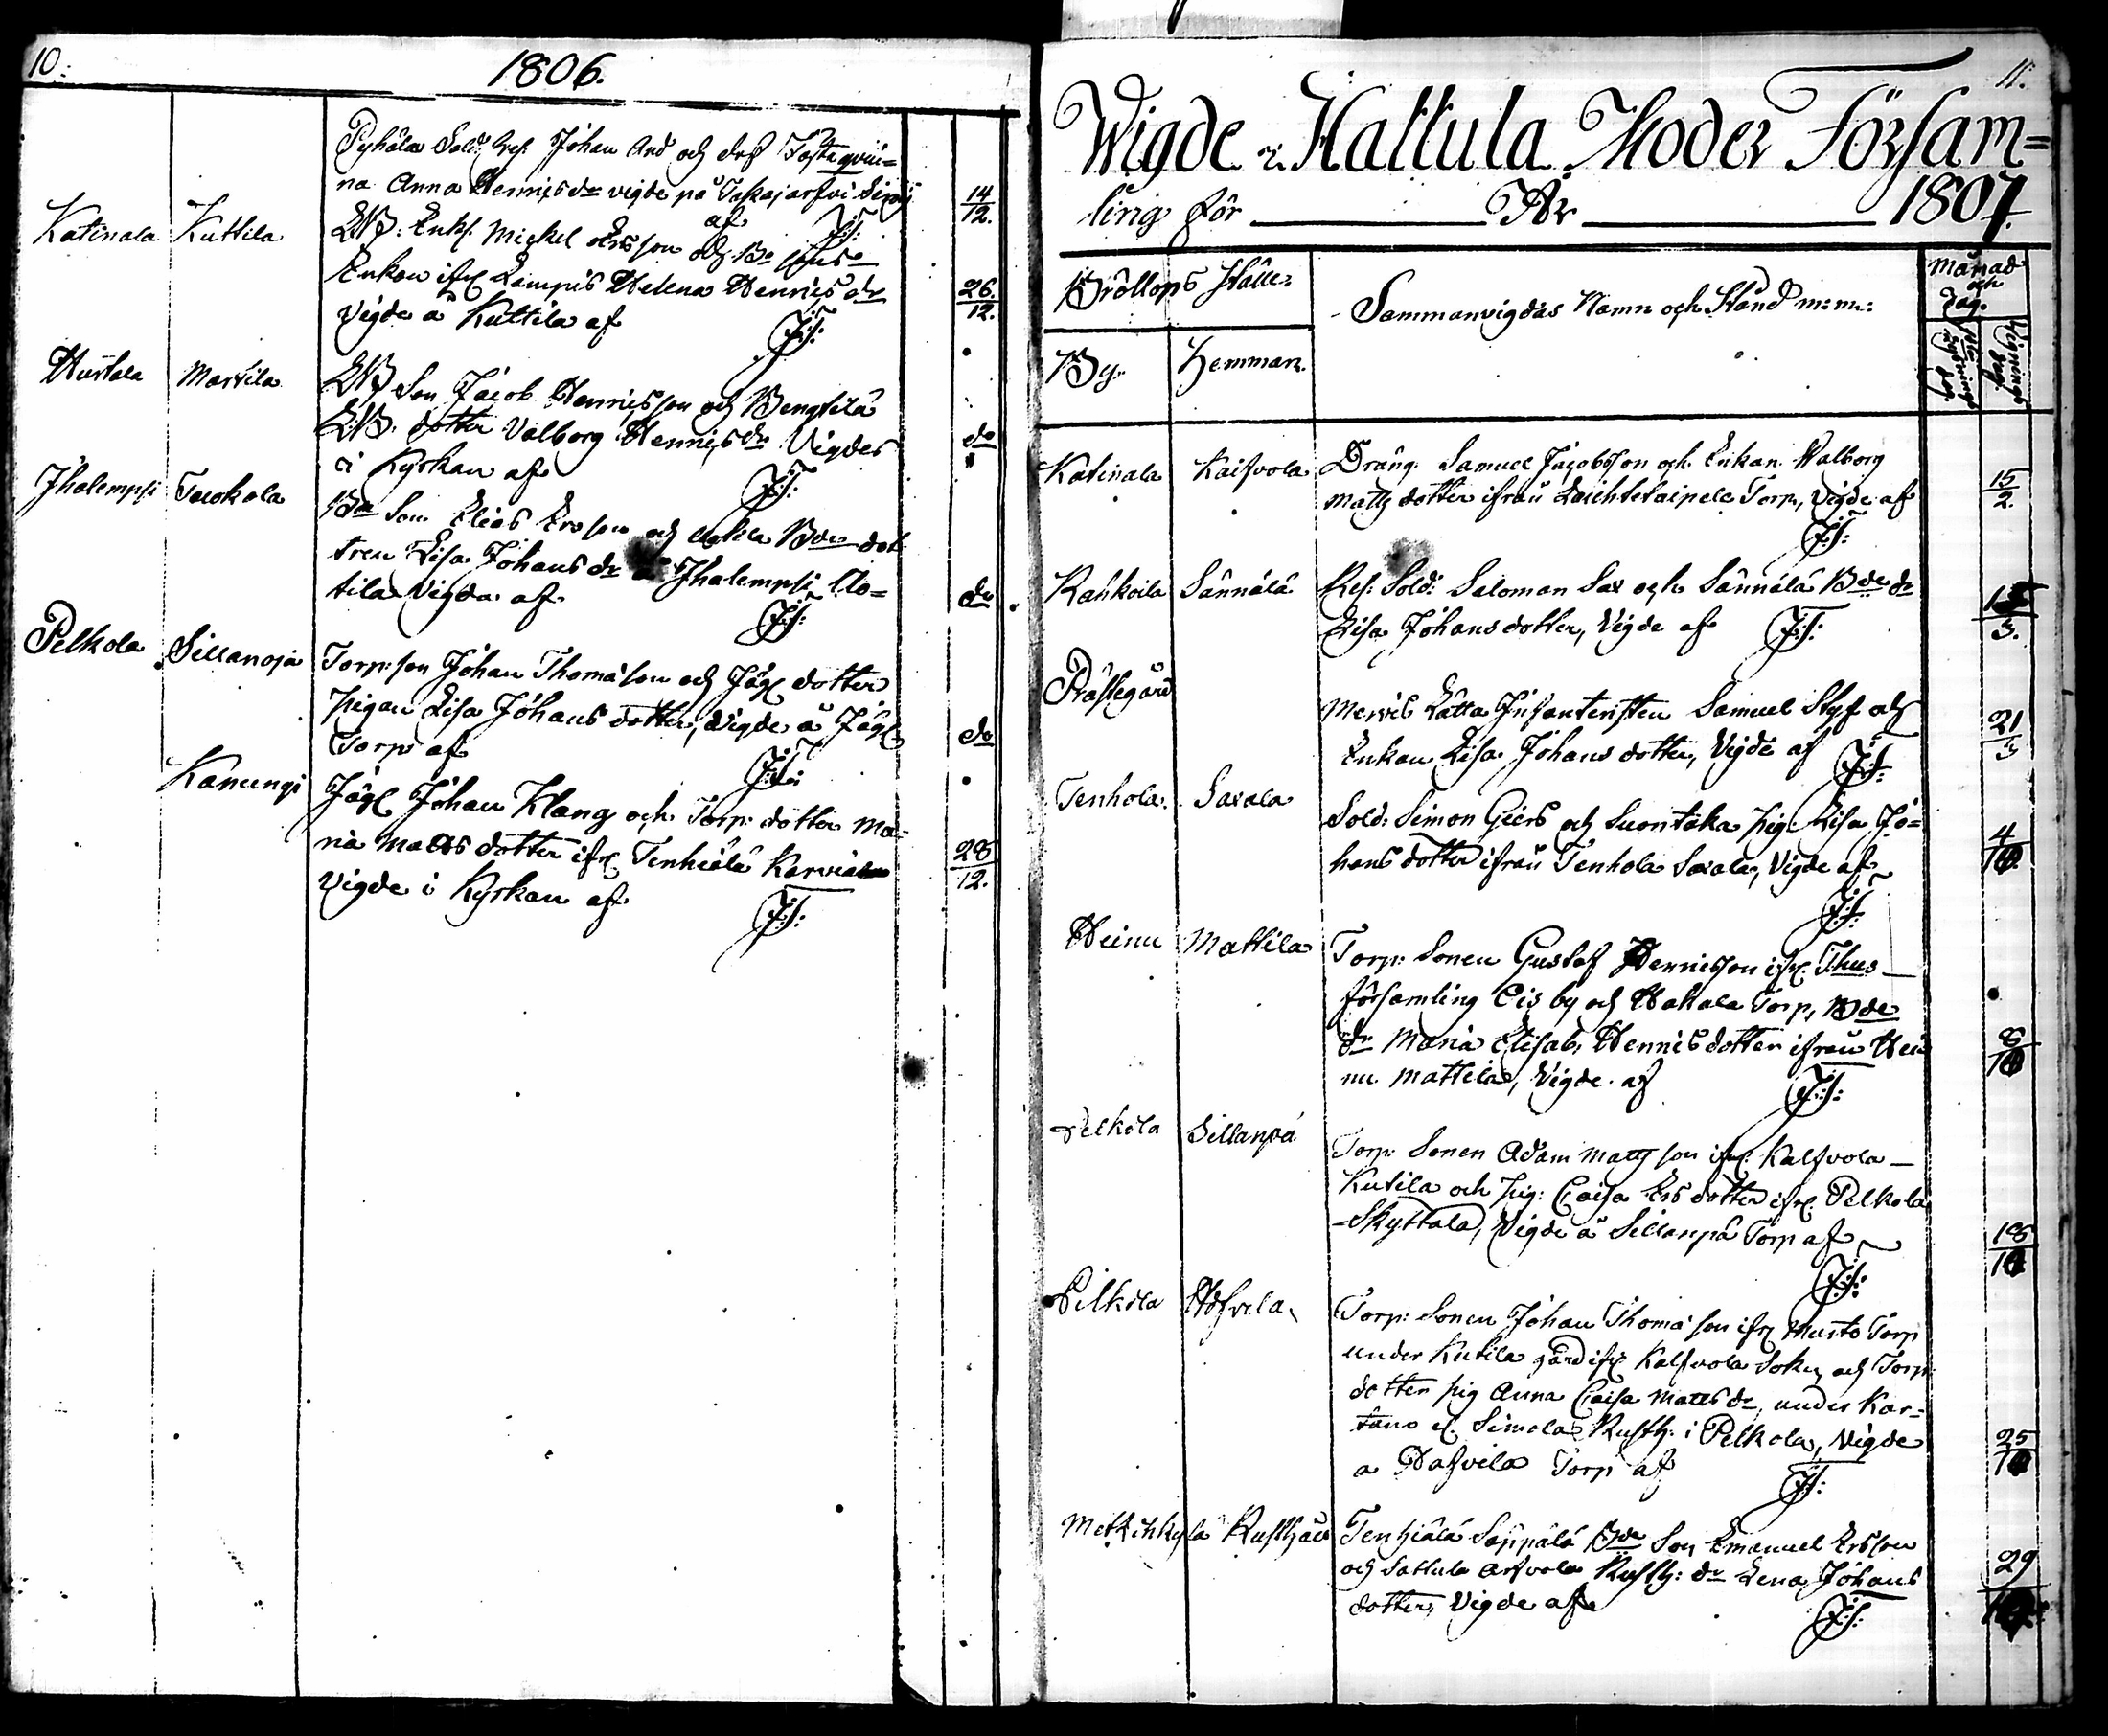 10:
1806.
Pyhälä Sold. Johan And och dess Fästeqvin=
na Anna Hennigsdr vigde på
af J:S:
14/12.
Katinala Kuttila
Enkl. Mickel Ersson och
Enkan ifr. Lempis Helena Hennigsdr
Vigde å Kuttila af J:S:
26./12.
Martila
Son Jacob Hennigsson och Bengtilä
dotter Valborg Hennigsdr Vigdes
i Kyrkan af J:S:
do
Ihalempi
Bde Son Elias Ersson och Bde dot
tren Lisa Johansdr Ihalempi Uo=
tila Vigda af J:S:
do
Pelkola Sillanoja
Torp: son Johan Thomasson och Jägl dotter
pigan Lisa Johans dotter, Vigde å Jägl
Torp af J:S:
do
Kanungi
Jägl Johan Klang och Torp: dotter Ma=
ria Matts dotter ifr. Tenhiälä
Vigde i Kyrkan af J:S:
28/12.
11.
Wigde i Hattula Moder Församl=
ling för År 1807.
Bröllops ställe:
Sammanvigdas Namn och Stånd m:m:
Månad
och
Dag.
By. Hemman.
Katinala Kaifvola
Dräng. Samuel Jacobsson och Enkan Walborg
Matts dotter ifrån Torp, Vigde af
J:S:
15/2.
Rahkoila Sännälä
Ref: Sold: Saloman Sax och Sännälä Bde dr
Lisa Johansdotter, Vigde af J:S:
3.
Prästegård
Mervis Lätta Infanteristen Samuel Styf och
Enkan Lisa Johans dotter, Vigde af J:S:
21/3
Tenhola Saxala
Sold: Simon Giers och Suontaka pig. Lisa Jo=
hans dotter ifrån Tenhola Saxala, Vigde af
J:S:
4/10.
Heinu Mattila
Torp: Sonen Gustaf Hennigsson ifr. Thus
församling by och Hakala Torp, Bde
dr Maria Elisab. Hennigsdotter ifrån Hei
nu Mattila, Vigde af J:S:
8/10
Pelkola Sillanpä
Torp: Sonen Adam Mattsson ifr. Kalfvola
Kutila och pig: Caisa Ersdotter ifr. Pelkola
Skyttala, Vigde å Sillanpä Torp af
J:S:
18/10
Pelkola Hofvila
Torp: Sonen Johan Thomasson ifr Musto Torp
under Kutila gård ifr. Kalfvola Sokn, och Torp:
dotter pig Anna Caisa Mattsdr, under Kar=
tano el. Simola Rusth. i Pelkola, Vigde
a Hofvila Torp af J:S:
25/10
Metzenkylä Rusthåll
Tenhiälä Seppälä Bde Son Emanuel Ersson
och Sattula Arfvola Rusth: dr Lena Johans
dotter, Vigde af J:S:
29